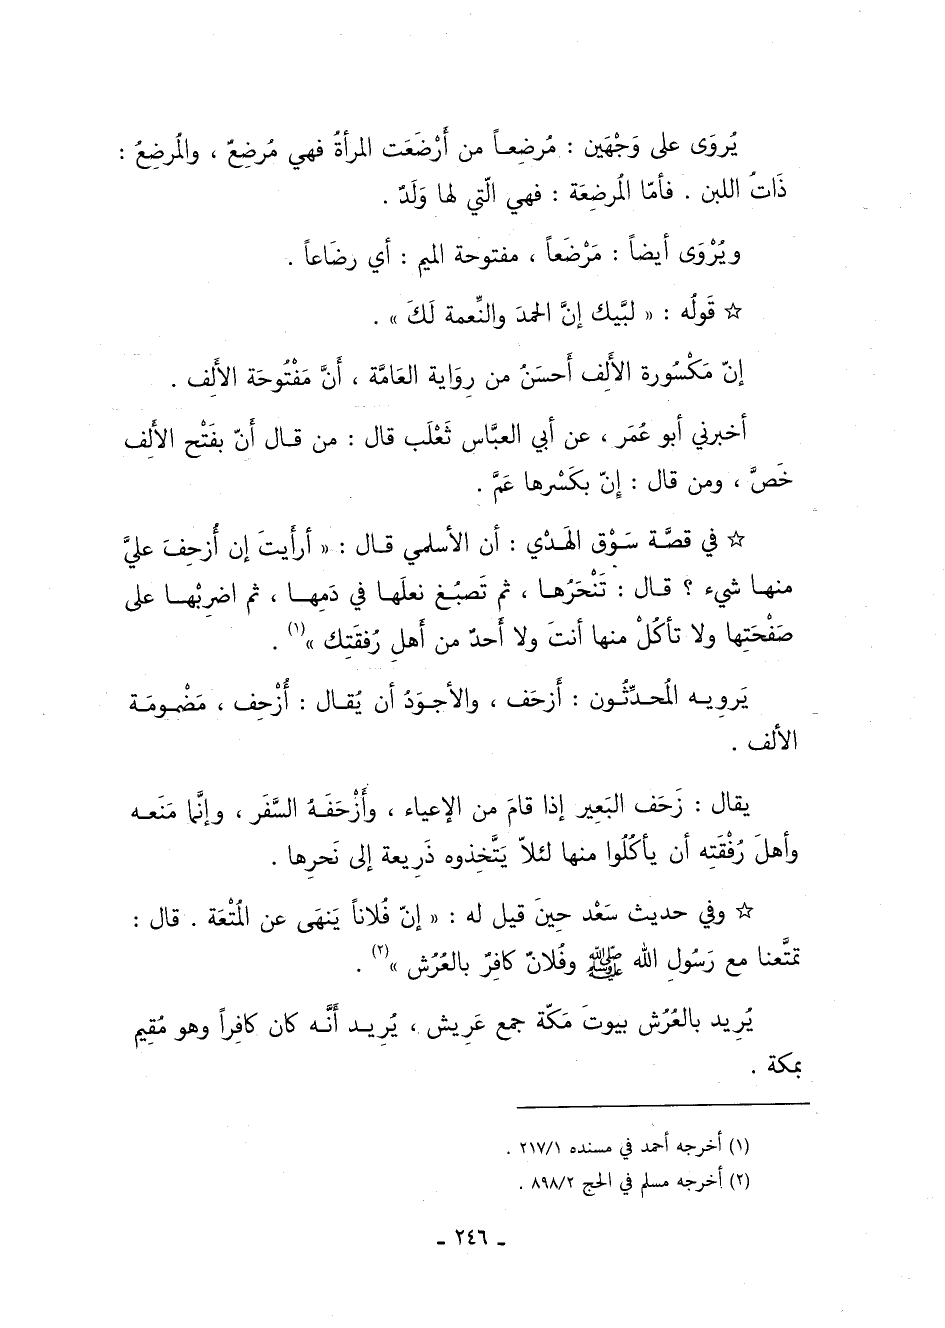 يُروَى على وَجْهَين : مُرضِعاً من أَرْضَعَت المرأةُ فهي مُرضِعٌ ، والمُرضِعُ :
ذَاتُ اللبن . فأمّا المُرضِعَة : فهي الّتي لها وَلَدٌ .
ويُرْوَى أيضاً : مَرْضَعاً ، مفتوحة الميم : أي رضَاعاً .
☆ قَولُه : « لبَّيك إنَّ الحمدَ والنِّعمة لَكَ » .
إنّ مَكْسُورة الألِف أحسَنُ من رِوَاية العَامَّة ، أَنَّ مَفْتُوحَة الأَلِف .
أخبرني أبو عُمَر ، عن أبي العبَّاس ثَعْلَب قال : من قـال أَنّ بفَتْح الألِف
خَصَّ ، ومن قال : إِنّ بكَسْرها عَمَّ .
☆ في قصَّة سَـوْق الهَـدْي : أن الأسلمي قـال : « أرأَيتَ إن أُزحِفَ عليَّ
منهـا شيء ؟ قـال : تَنْحَرُهـا ، ثم تَصبُـغ نعلَهـا في دَمِهـا ، ثم اضرِبْهـا على
صَفْحَتِها ولا تأكُلْ منها أنتَ ولا أحدٌ من أهلِ رُفقَتِك »(١) .
يَرويـه المُحـدِّثُـون : أَزحَف ، والأجوَدُ أن يُقـال : أُزْحِف ، مَضْمومَـة
الألف .
يقال : زَحَف البَعِير إذا قامَ من الإعياء ، وأَزْحَفَهُ السَّفَر ، وإنَّما مَنَعـه
وأهلَ رُفْقَتِه أن يأكُلُوا منها لئلاّ يَتَّخِذوه ذَرِيعة إلى نَحرِها .
☆ وفي حديث سَعْد حِينَ قيل له : « إنّ فُلاناً يَنهَى عن المُتْعَة . قال :
تمتَّعنا مع رَسُولِ الله ﷺ وفُلانٌ كافِرٌ بالعُرُش »(٢) .
يُرِيد بالعُرُش بيوتَ مَكّة جمع عَرِيش ، يُرِيـد أَنَّـه كان كافِراً وهو مُقِيم
بمكة .
(١) أخرجه أحمد في مسنده ٢١٧/١ .
(٢) أخرجه مسلم في الحج ٨٩٨/٢ .
ـ ٢٤٦ ـ